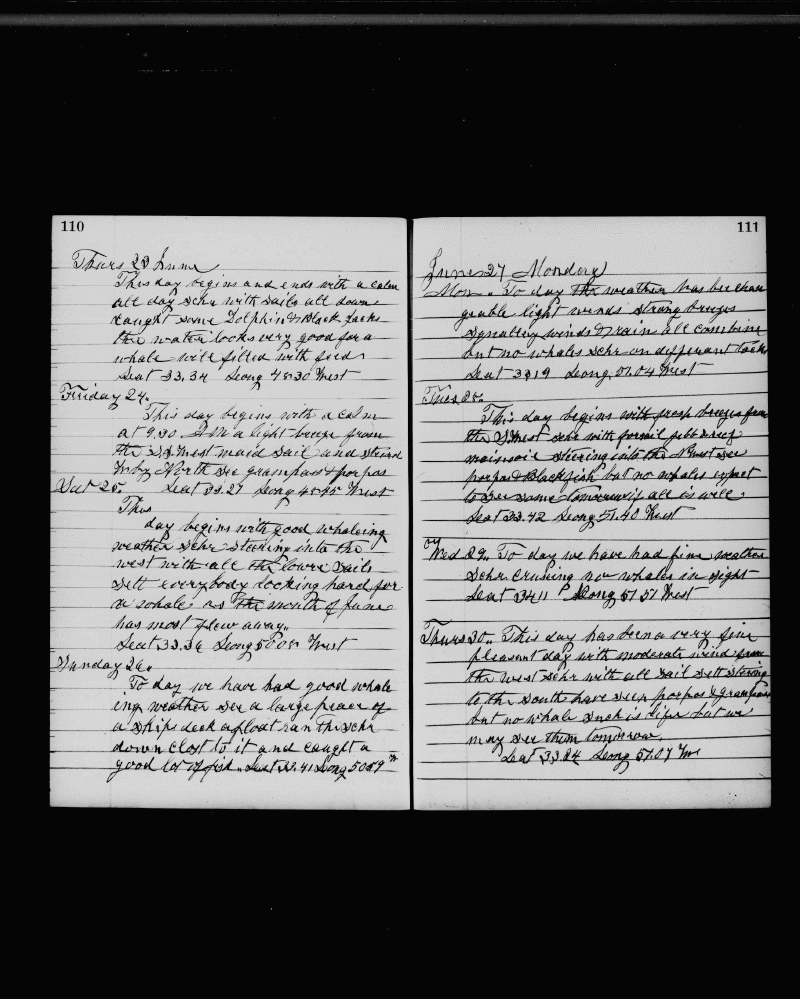 110
Thurs 23 June
This day begins and ends with a calm
all day Schr with sails all down
caught some Dolphin & Black Jacks
the water looks very good for a
whale will filled with feed
Leat 33,34 Leong 48.30 West
Friday 24.
This day begins with a calm
at 9.30 A.M a light breeze from
the S.S.West maid sail and steard
W by North see grampas & porpas
Sat 25. Leat 33.27 Leong 48.45 West
This
day begins with good whaleing
weather Schr steering into the
west with all the lowre sails
sett everybody looking hard for
a whale as the month of June
has most flew away..
Leat 33.36 Leong 50.08 West
Sunday 26.
To day we have had good whale
ing weather see a large peace of
a ships deck afloat ran the schr
down clost to it and caught a
good lot of fish.. Leat 33.41 Leong 50.59 W
111
June 27 Monday
Mon.. To day the weather has bee chan
geable light winds strong breezes
squalley winds & rain all combine
but no whales schr on differant tacks
Leat 33 19 Leong. 51.04 West
Tues 28.
This day begins with fresh breezes from
the S.West schr with forsail jebb & reef
mainsail steering into the N West see
porpas & Blackfish but no whales expect
to see some tomorrow if all is well
Leat 33.42 Leong 51.40 West
Wed 29.. To day we have had fine weather
Schr cruising no whales in sight
Leat 34 11 Leong 51 51 West
Thurs 30.. This day has been a very fine
pleasent day with moderate wind from
the west schr with all sail sett steering
to the South have seen porpas & grampas
but no whale such is life but we
may see them tomorrow.
Leat 33.24 Leong 51.07 West